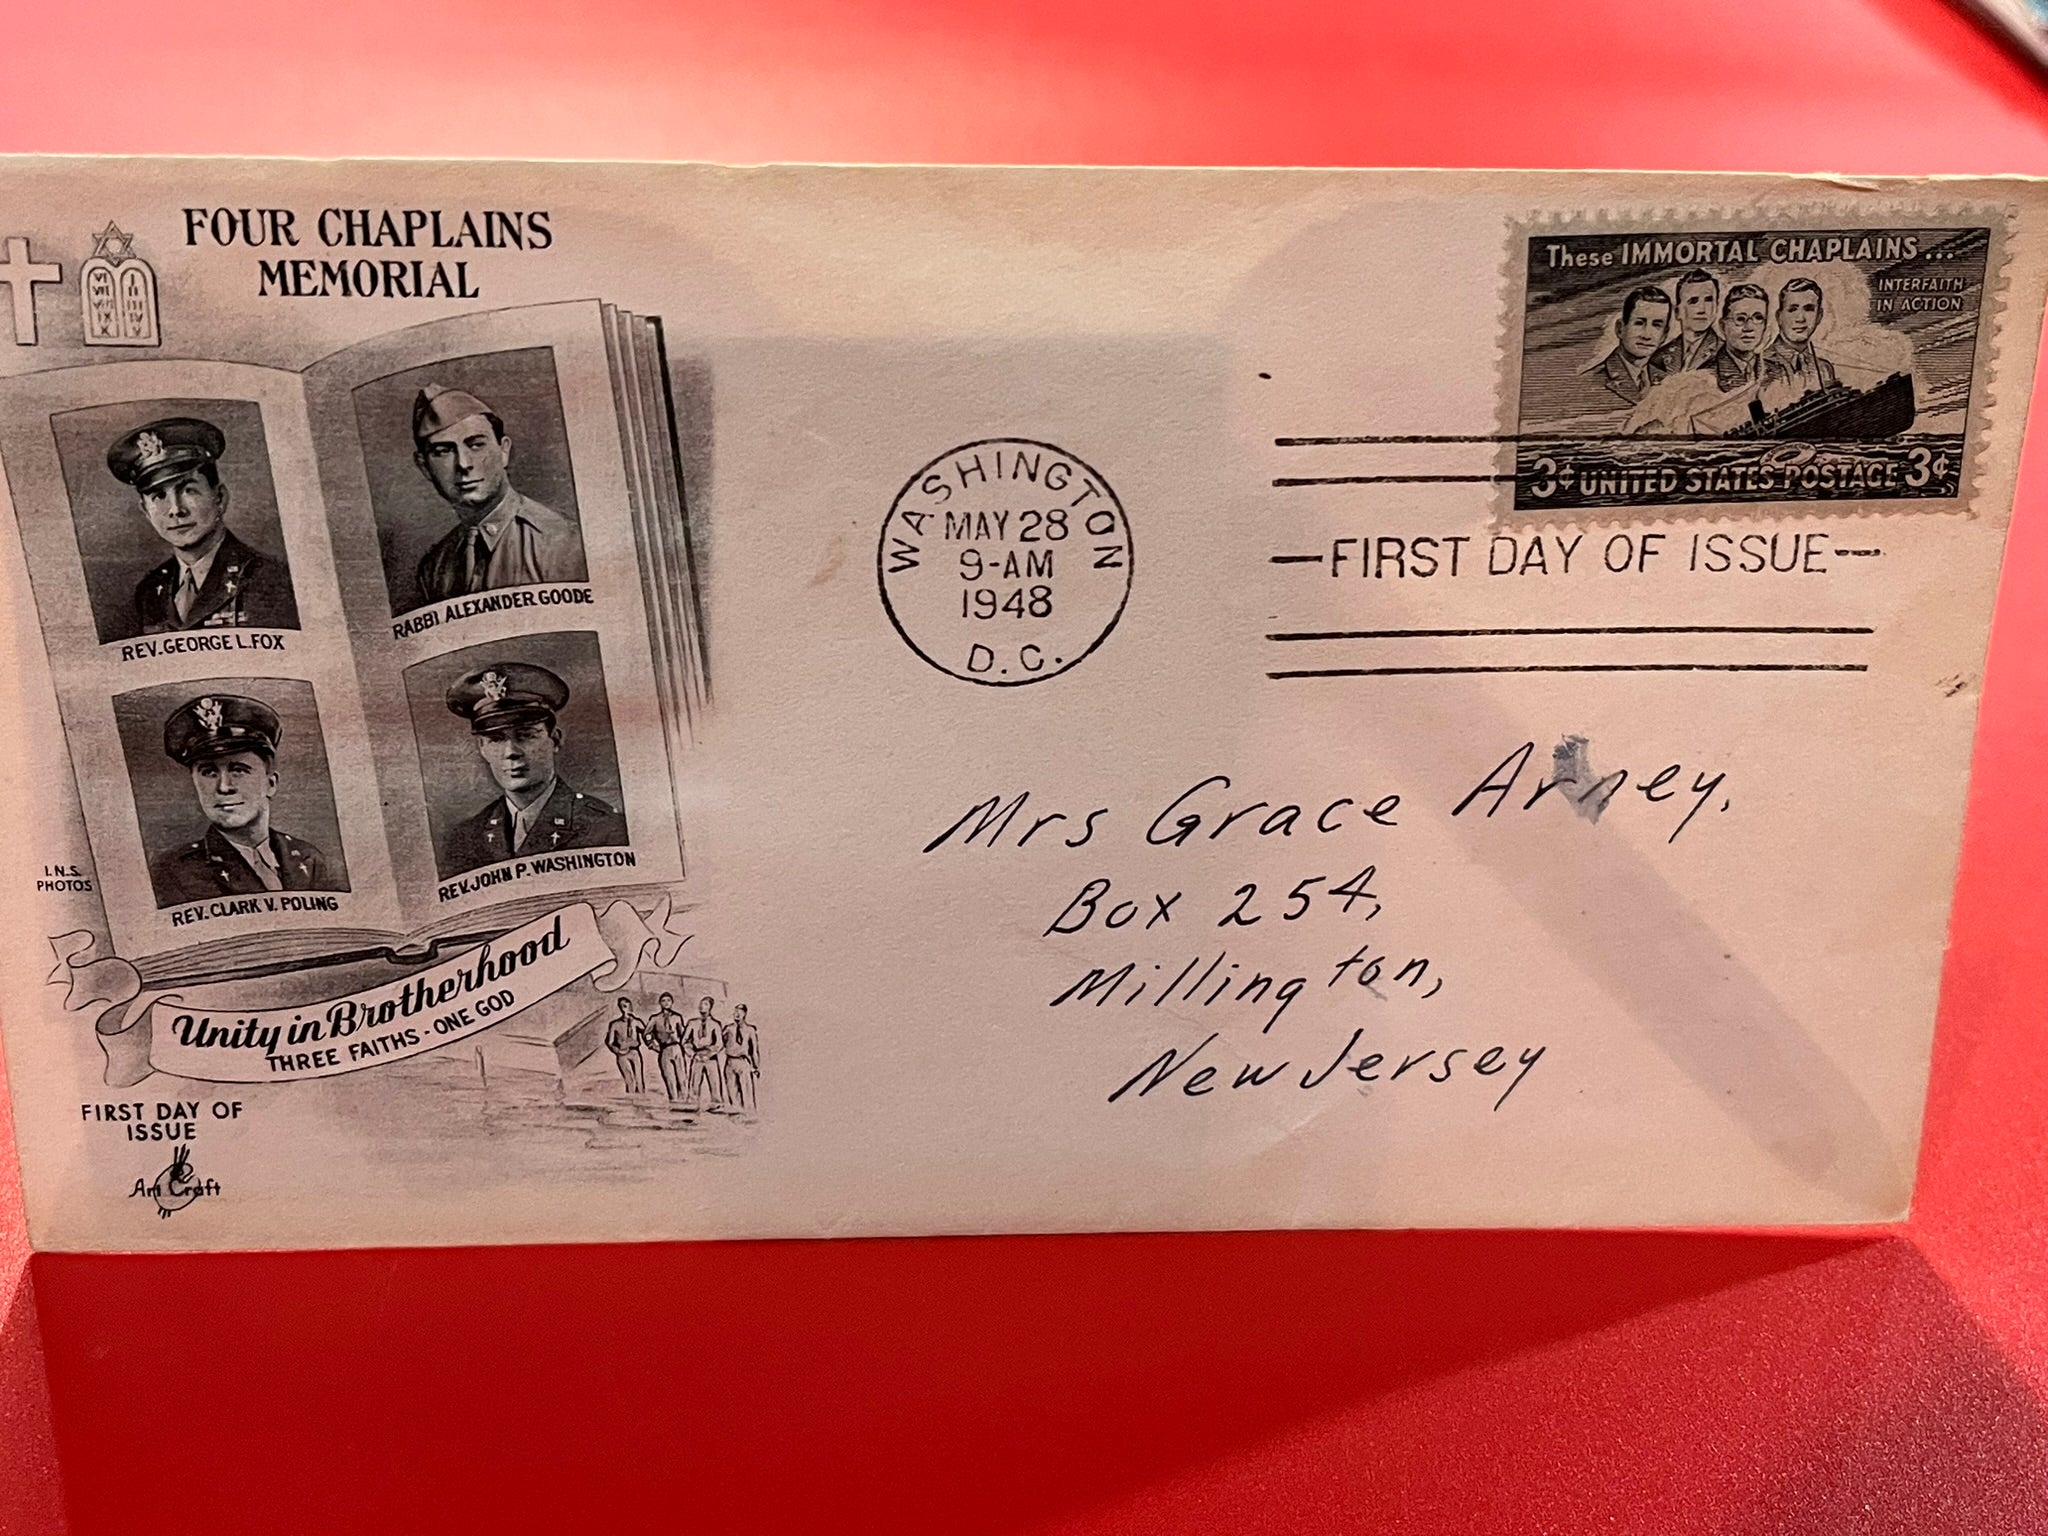 FOUR CHAPLAINS
MEMORIAL
REV. GEORGE L. FOX
RABBI ALEXANDER GOODE
REV. CLARK V. POLING
REV. JOHN P. WASHINGTON
I.N.S.
PHOTOS
Unity in Brotherhood
THREE FAITHS - ONE GOD
FIRST DAY OF
ISSUE
Art Craft
WASHINGTON
MAY 28
9-AM
1948
D.C.
These IMMORTAL CHAPLAINS...
INTERFAITH
IN ACTION
3¢ UNITED STATES POSTAGE 3¢
—FIRST DAY OF ISSUE—
Mrs Grace Arney,
Box 254,
Millington,
New Jersey